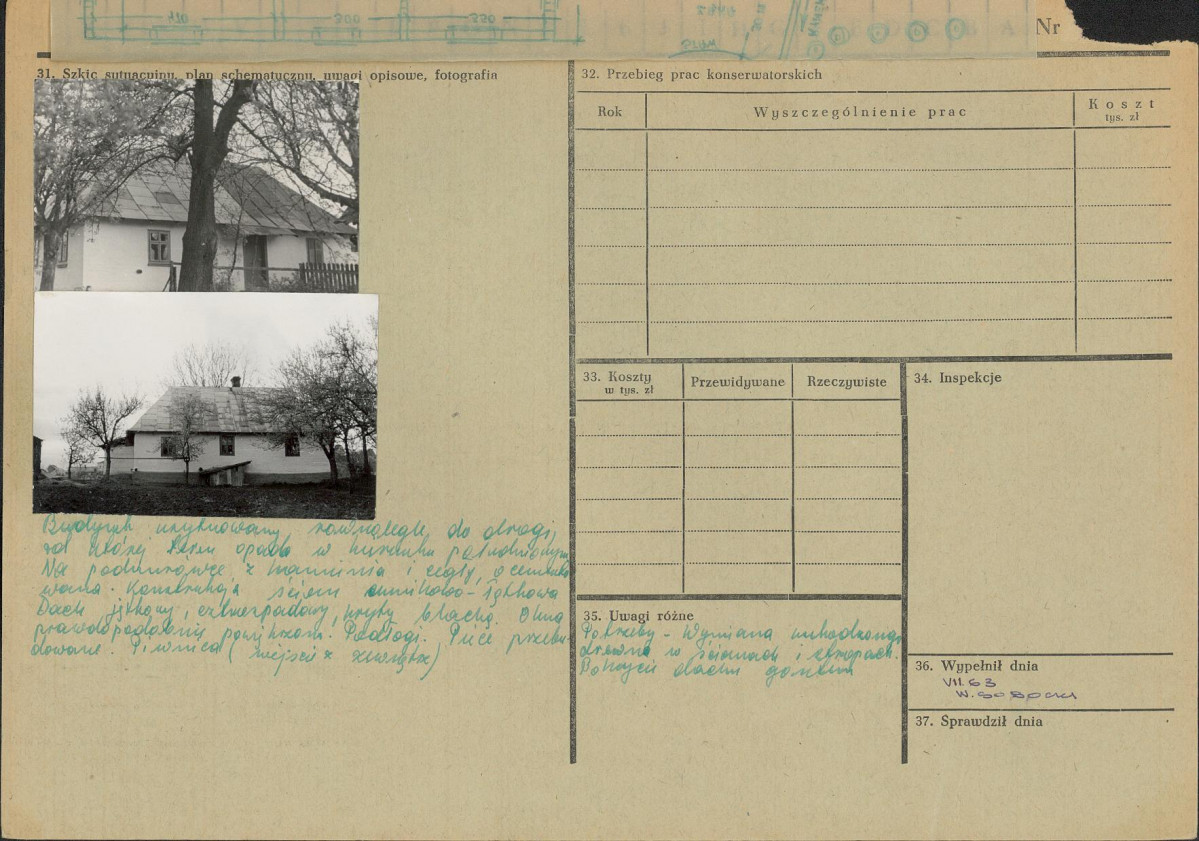 410 300 330
Nr
31. Szkic sytuacyjny, plan schematyczny, uwagi opisowe, fotografia
Budynek usytuowany równolegle do drogi,
od której teren opada w kierunku południowym
Na podmurówce z kamienia i cegły, ocemento
wana. Konstrukcja ścian sumikowo-łątkowa
Dach jętkowy, czterospadowy, kryty blachą. Okna
prawdopodobnie powiększone. Podłogi. Piece przebu
dowane. Piwnica (wejście z zewnątrz)
32. Przebieg prac konserwatorskich
Rok Wyszczególnienie prac Koszt
tys. zł
33. Koszty Przewidywane Rzeczywiste
w tys. zł
34. Inspekcje
35. Uwagi różne
Potrzeby - Wymiana uszkodzonego
drewna w ścianach i stropach.
Pokrycie dachu gontem
36. Wypełnił dnia
VII.63
37. Sprawdził dnia